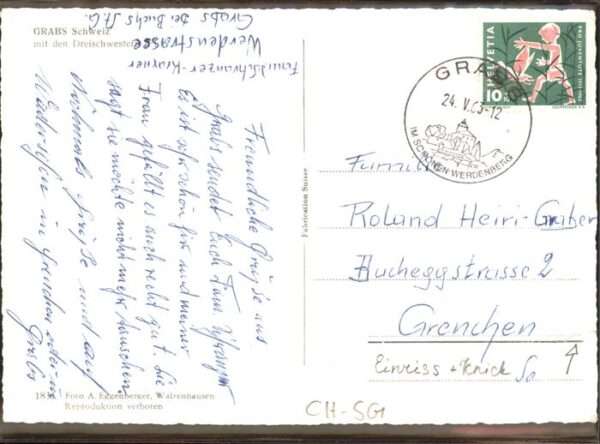 GRABS Schweiz
mit den Dreischwestern
Werdenstrasse
Grabs bei Buchs St. G.
Freundliche Grüsse aus
Grabs sendet Euch Fam.
Es ist sehr schön hier und meiner
Frau gefällt es auch recht gut. Sie
sagt sie möchte nicht mehr tauschen.
Nochmals Grüsse und auf
Wiedersehen in Grenchen oder in
Grabs
1836 Foto A. Eggenberger, Walzenhausen
Reproduktion verboten
Fabrication Suisse
HELVETIA
10
PRO JUVENTUTE 1912-1962
GRABS
24. V. 63-12
IM SCHÖNEN WERDENBERG
Familie
Roland Heiri-Graber
Bucheggstrasse 2
Grenchen
Einriss + Knick So
CH-SG